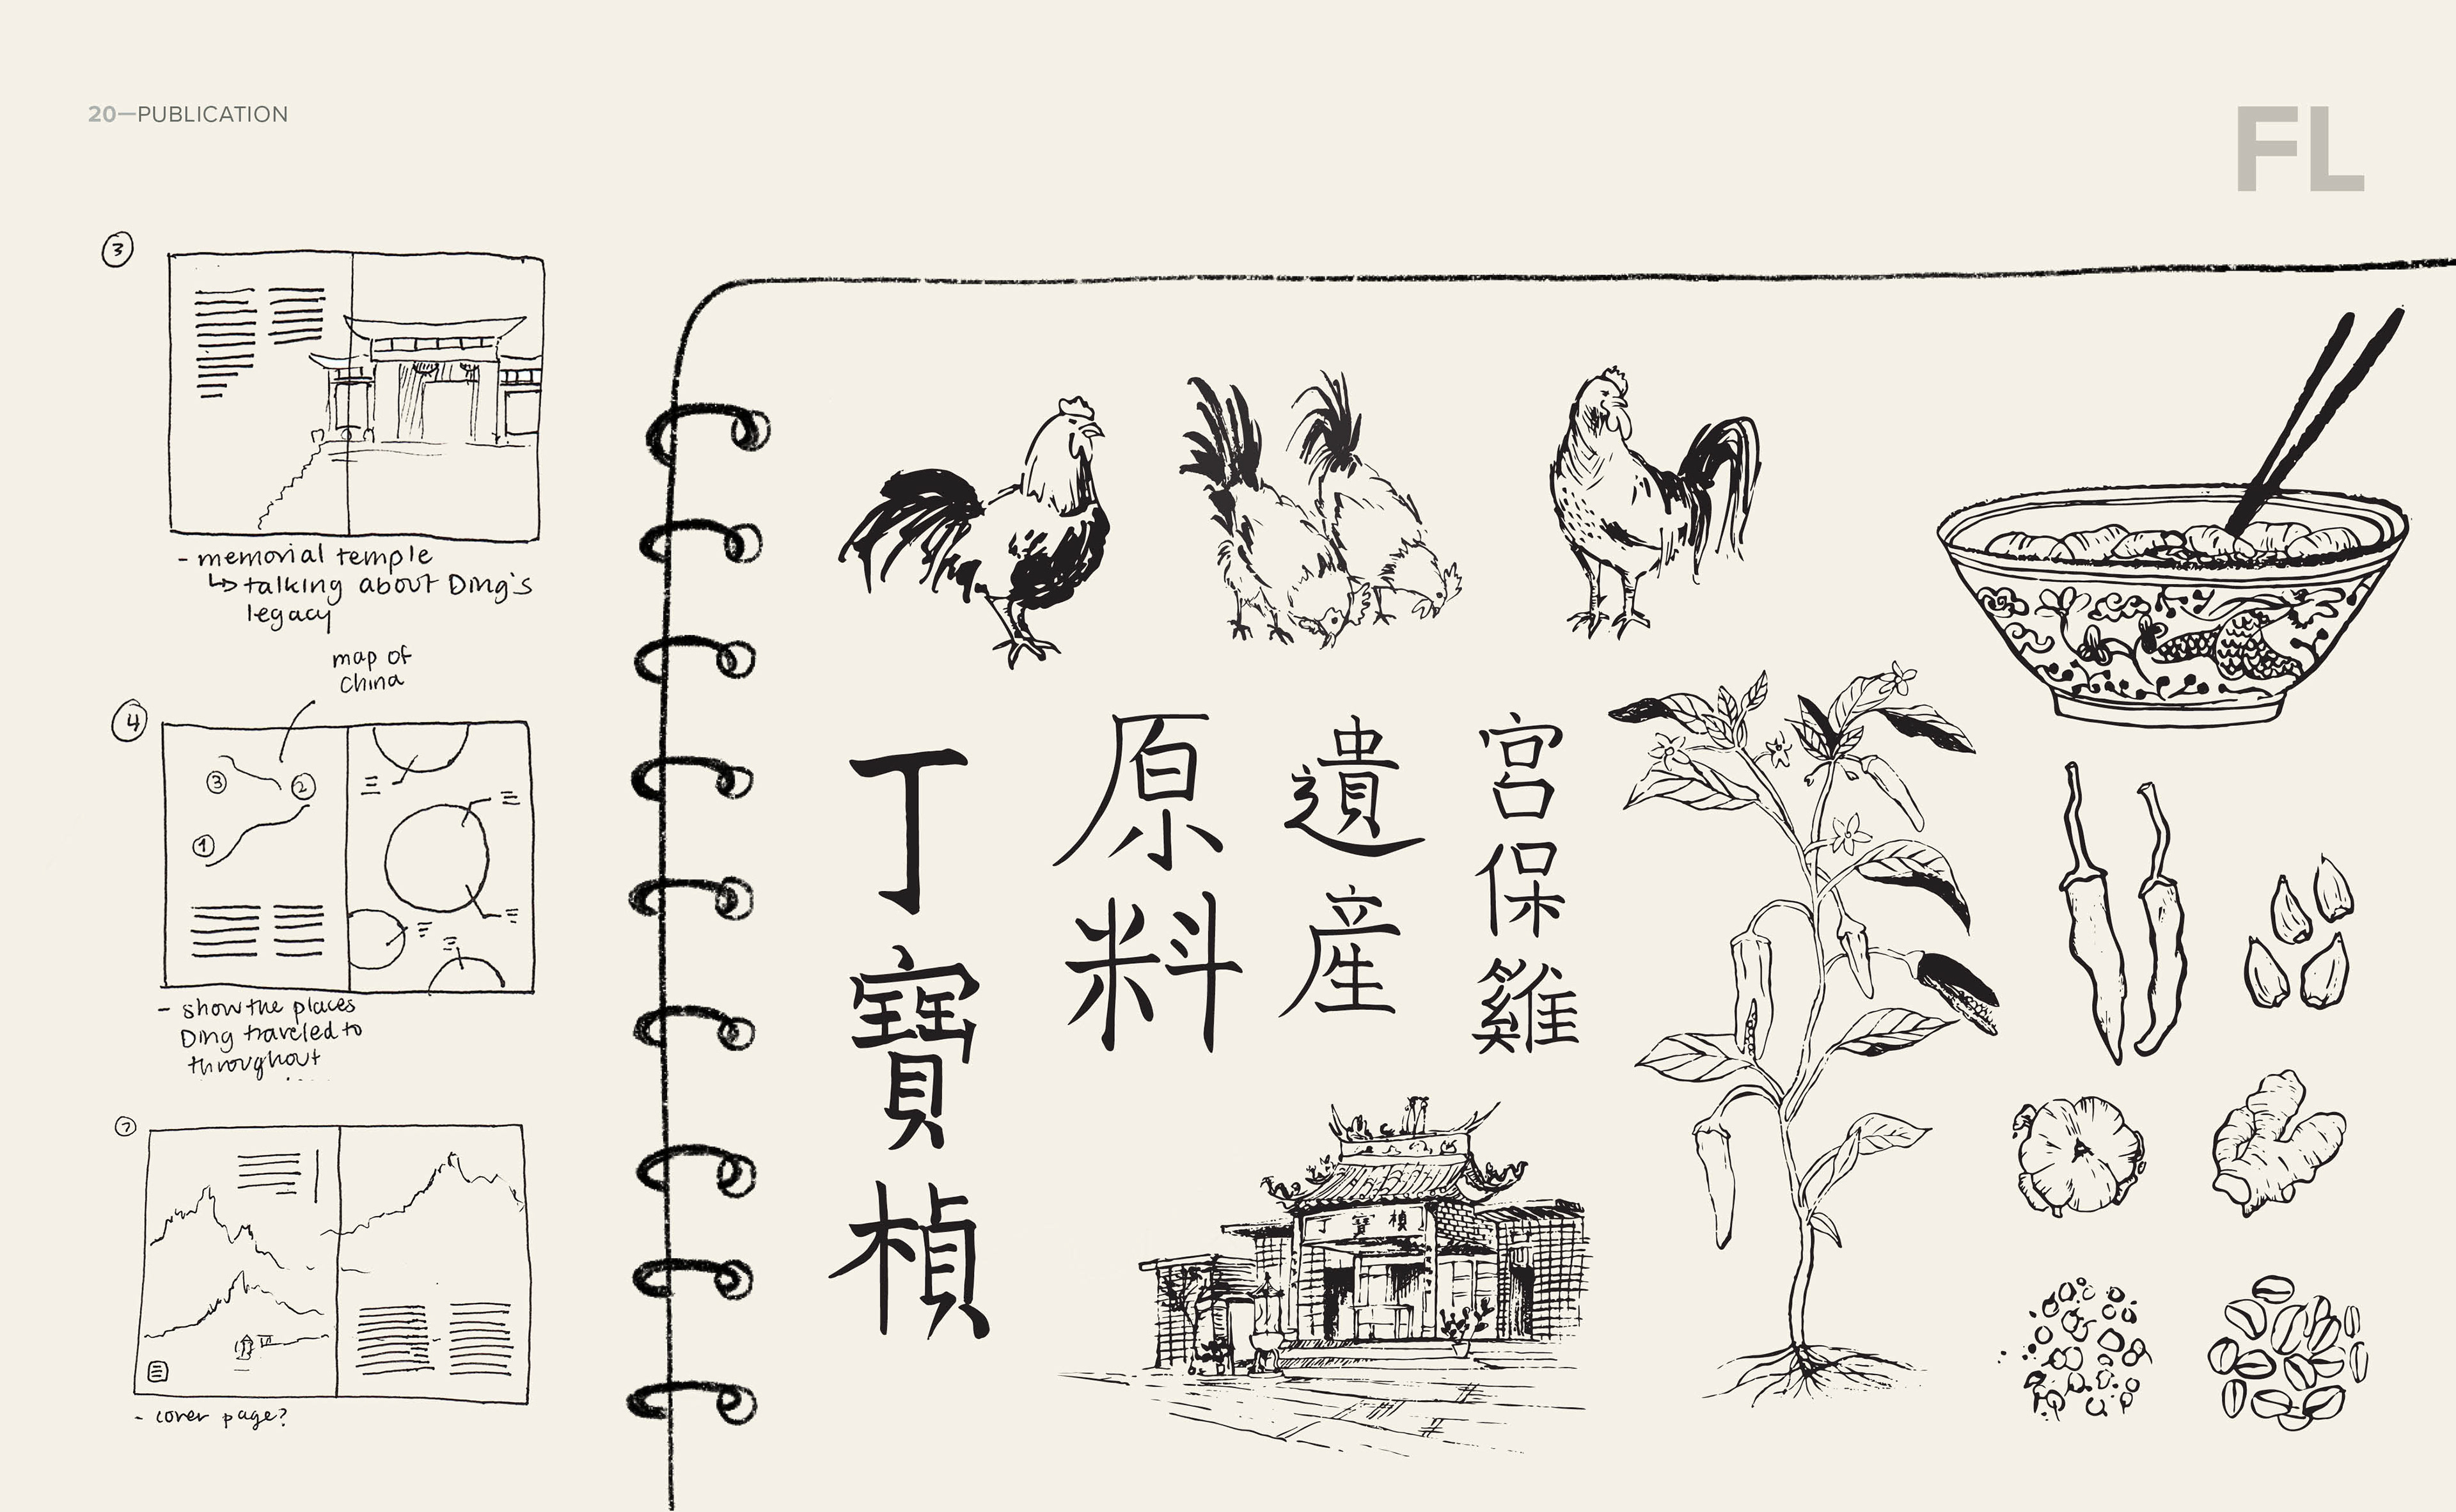 20—PUBLICATION
FL
3
- memorial temple
↳ talking about Ding's
legacy
map of
China
4
3
2
1
- show the places
Ding traveled to
throughout
7
- cover page?
丁寶楨
原料
遺産
宮保雞
丁寶楨